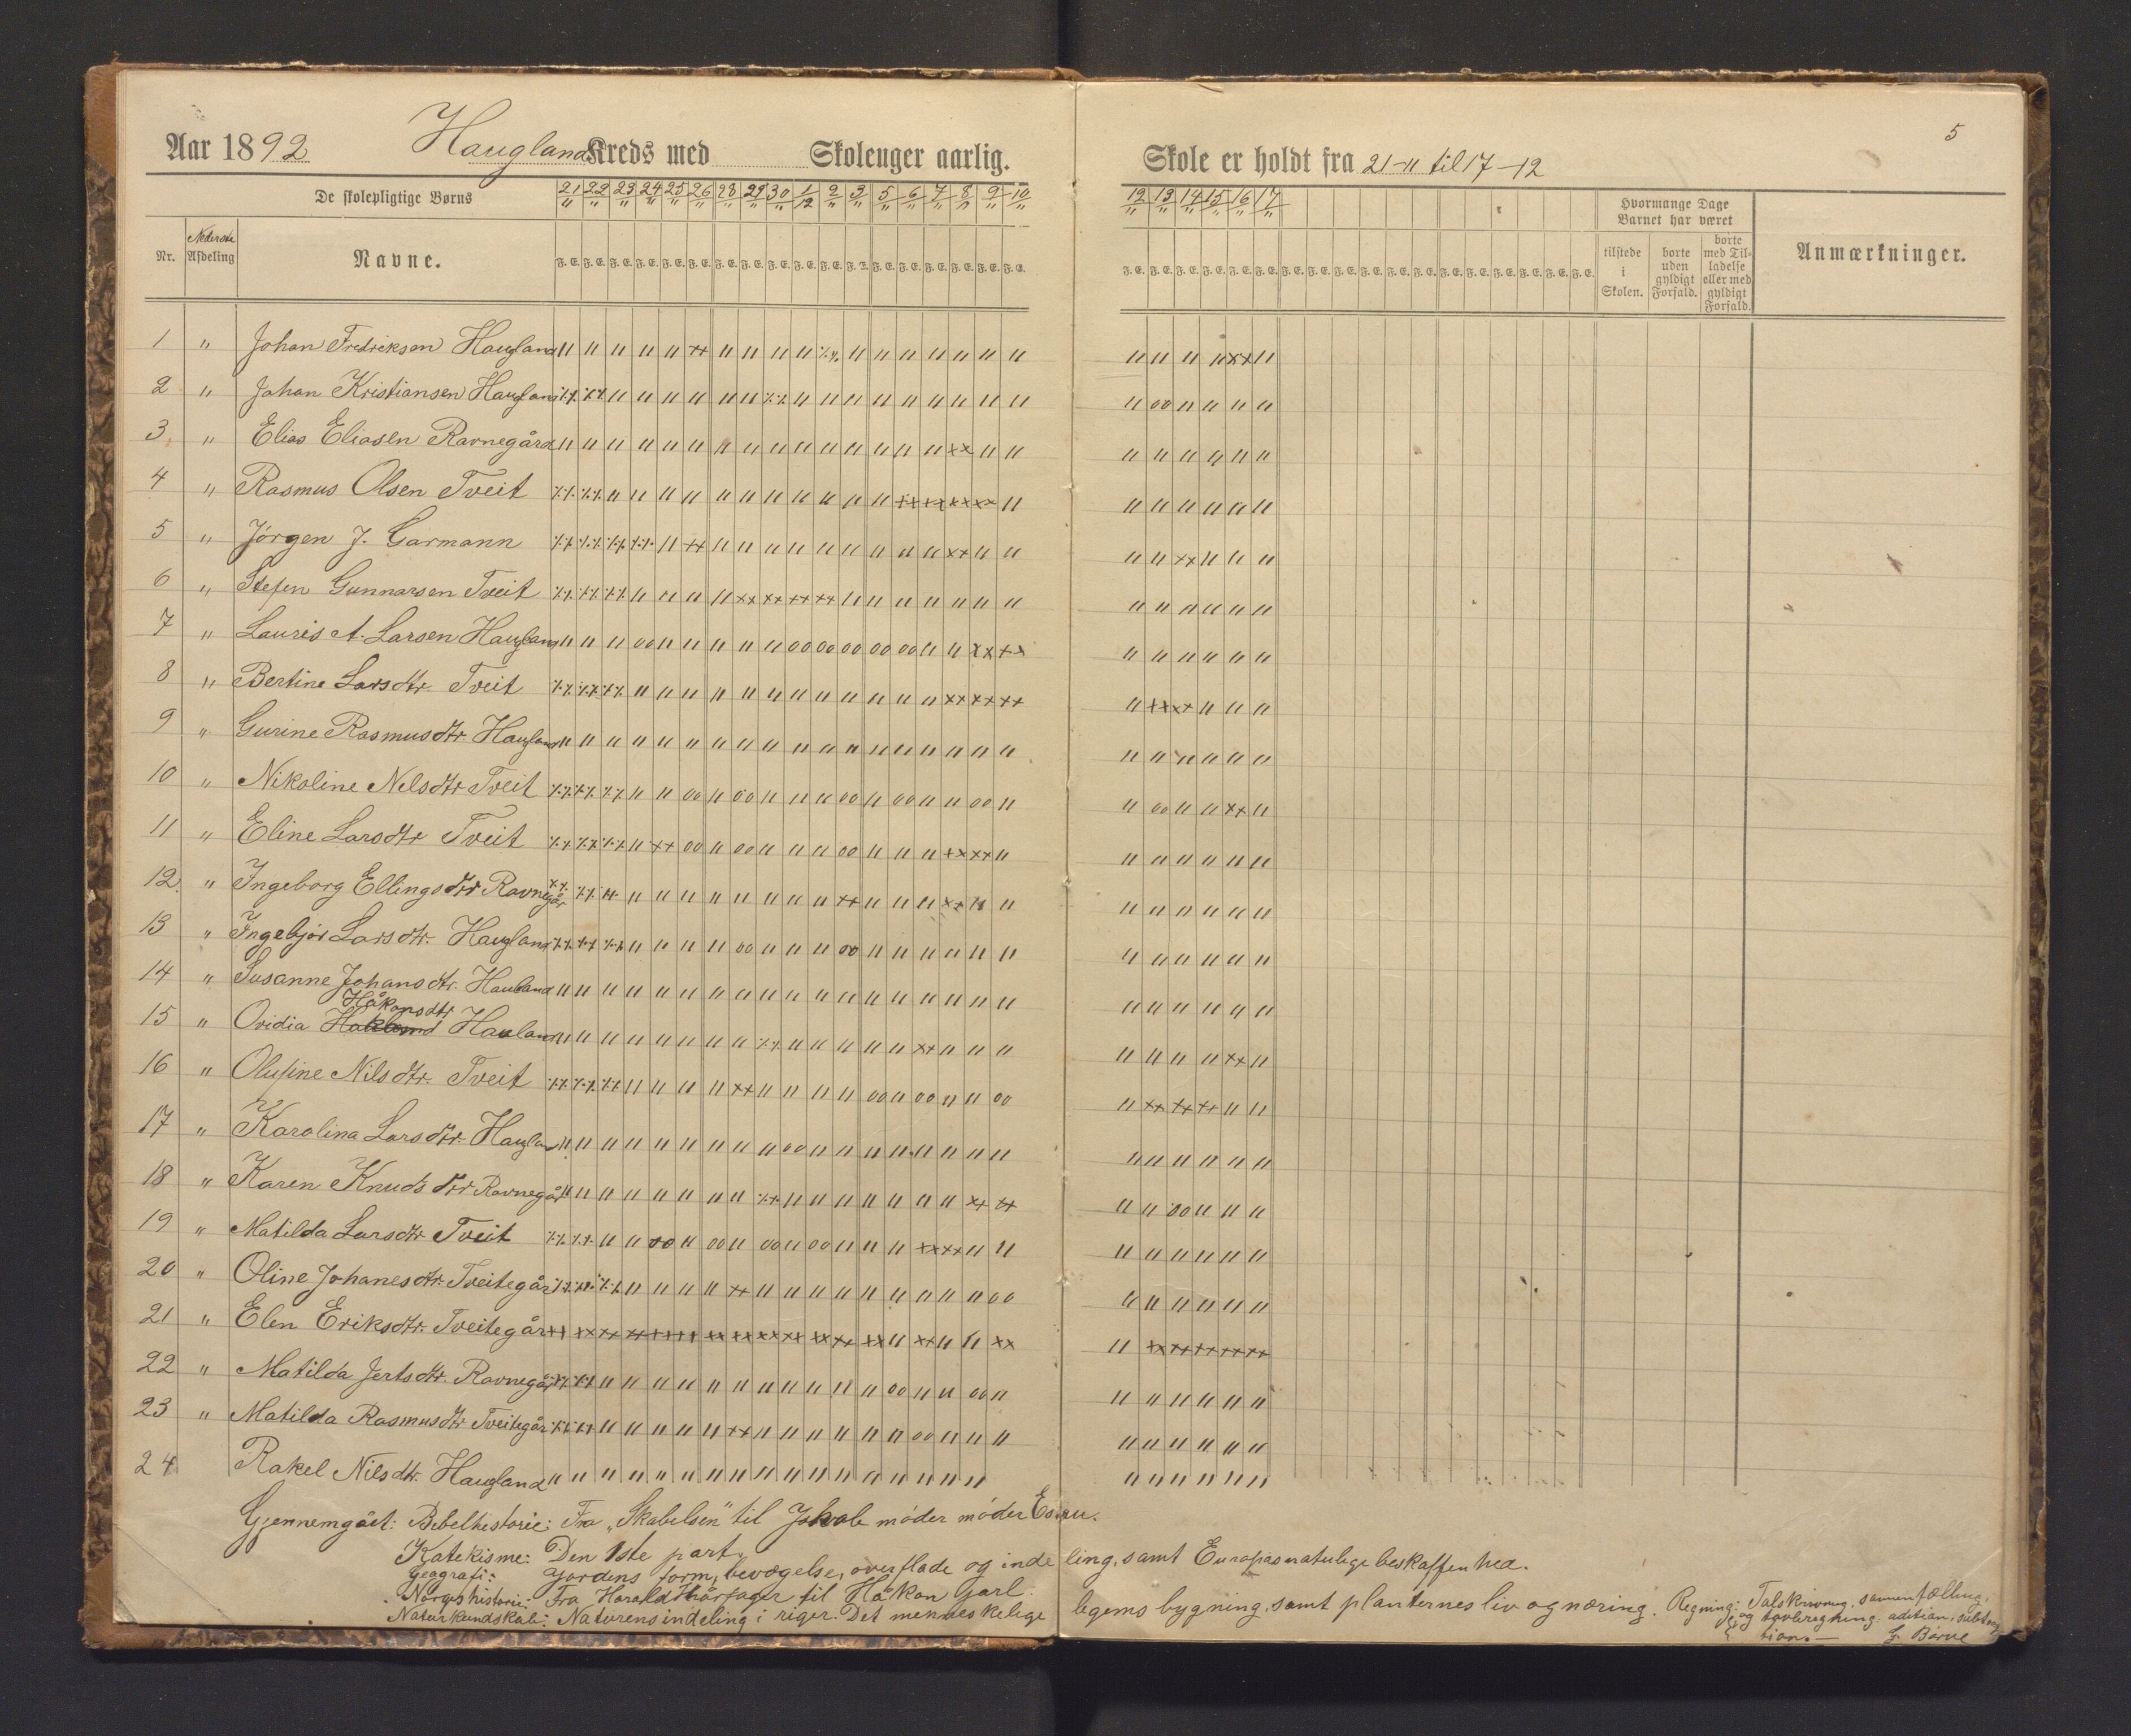 5
Aar 1892 Haugland Kreds med Skoleuger aarlig. Skole er holdt fra 21-11 til 17-12
De skolepligtige Børns
21/11 22/" 23/" 24/" 25/" 26/" 28/" 29/" 30/" 1/12 2/" 3/" 5/" 6/" 7/" 8/" 9/" 10/" 12/" 13/" 14/" 15/" 16/" 17/"
Hvormange Dage Barnet har været
Nr. Nederste Afdeling Navne. F. E. tilstede i Skolen. borte uden gyldigt Forfald. borte med Tilladelse eller med gyldigt Forfald. Anmærkninger.
1 " Johan Fredriksen Haugland
2 " Johan Kristiansen Haugland
3 " Elias Eliasen Ravnegård
4 " Rasmus Olsen Tveit
5 " Jörgen J. Garmann
6 " Stefen Gunnarsen Tveit
7 " Lauris A. Larsen Haugland
8 " Bertine Larsdtr. Tveit
9 " Gurine Rasmusdtr. Haugland
10 " Nikoline Nelsdtr Tveit
11 " Eline Larsdtr Tveit
12 " Ingeborg Ellingsdtr Ravnegår
13 " Ingebjör Larsdtr. Haugland
14 " Susanne Johansdtr. Hauland
Håkonsdtr
15 " Ovidia Hauland
16 " Olufine Nilsdtr. Tveit
17 " Karolina Larsdtr. Haugland
18 " Karen Knudsdtr Ravnegår
19 " Matilda Larsdtr Tveit
20 " Oline Johanesdtr. Tveitegår
21 " Elen Eriksdtr. Tveitegår
22 " Matilda Jertsdtr. Ravnegår
23 " Matilda Rasmusdtr Tveitegår
24 Rakel Nilsdtr. Haugland
Gjennemgået: Bibelhistorie: Fra „Skabelsen" til Jakob möder möder Esau.
Katekisme: Den 1ste part.
Geografi: Jordens form, bevægelse, overflade og indeling, samt Europas naturlige beskaffenhed.
Norgeshistorie: Fra Harald Hårfager til Håkon Jarl.
Naturkundskab: Naturens indeling i riger. Det menneskelige legems bygning, samt planternes liv og næring. Regning: Talskrivning, sammentælling,
og tavleregning: adition, subtrak
tion. —
Börve